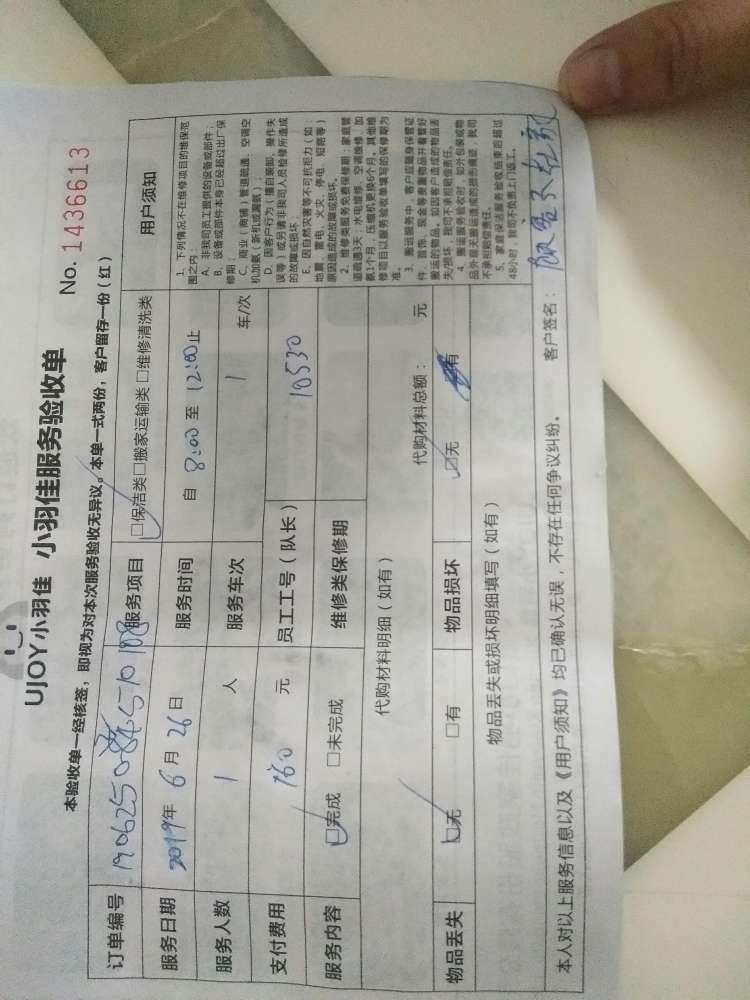 UJOY小羽佳 小羽佳服务验收单
No. 1436613
本验收单一经核签，即视为对本次服务验收无异议。本单一式两份，客户留存一份（红）
订单编号
服务项目 ☑保洁类□搬家运输类□维修清洗类
用户须知
服务日期 2019年6月26日
服务时间 自 8:00 至 12:00止
服务人数 1 人
服务车次 1 车/次
支付费用 160 元
员工工号（队长） 10530
服务内容 ☑完成 □未完成
维修类保修期
1、下列情况不在维修项目的维保范
围之内：
A、非我司员工提供的设备或部件；
B、设备或部件本身已经超过出厂保
修期；
C、商业（商铺）管道疏通、空调空
机加氨（新机或漏氨）；
D、因客户行为（擅自装卸、操作失
误等）或另请非我司人员检修所造成
的故障或损坏
E、因自然灾害等不可抗拒力（如：
地震、雷电、火灾、停电、短路等）
原因造成的故障或损坏。
2、维修类服务免费保修期：家庭管
道疏通3天；水电维修、空调维修、加
氨1个月，压缩机更换6个月，其他维
修项目以服务验收单填写的保修期为
准。
3、搬运服务中，客户应随身保管证
件、首饰、现金等贵重物品并看管好
搬运的物品。如因客户造成的物品丢
失/损坏，我司不承担赔偿责任。
4、搬运服务验收时，如外包装或物
品外观无搬运造成的损伤痕迹，我司
不承担赔偿责任。
5、家庭保洁服务验收结束后超过
48小时，我司不负责上门返工。
代购材料明细（如有）
代购材料总额： 元
物品丢失 ☑无 □有
物品损坏 ☑无 有
物品丢失或损坏明细填写（如有）
本人对以上服务信息以及《用户须知》均已确认无误，不存在任何争议纠纷。 客户签名： 顾客不在家